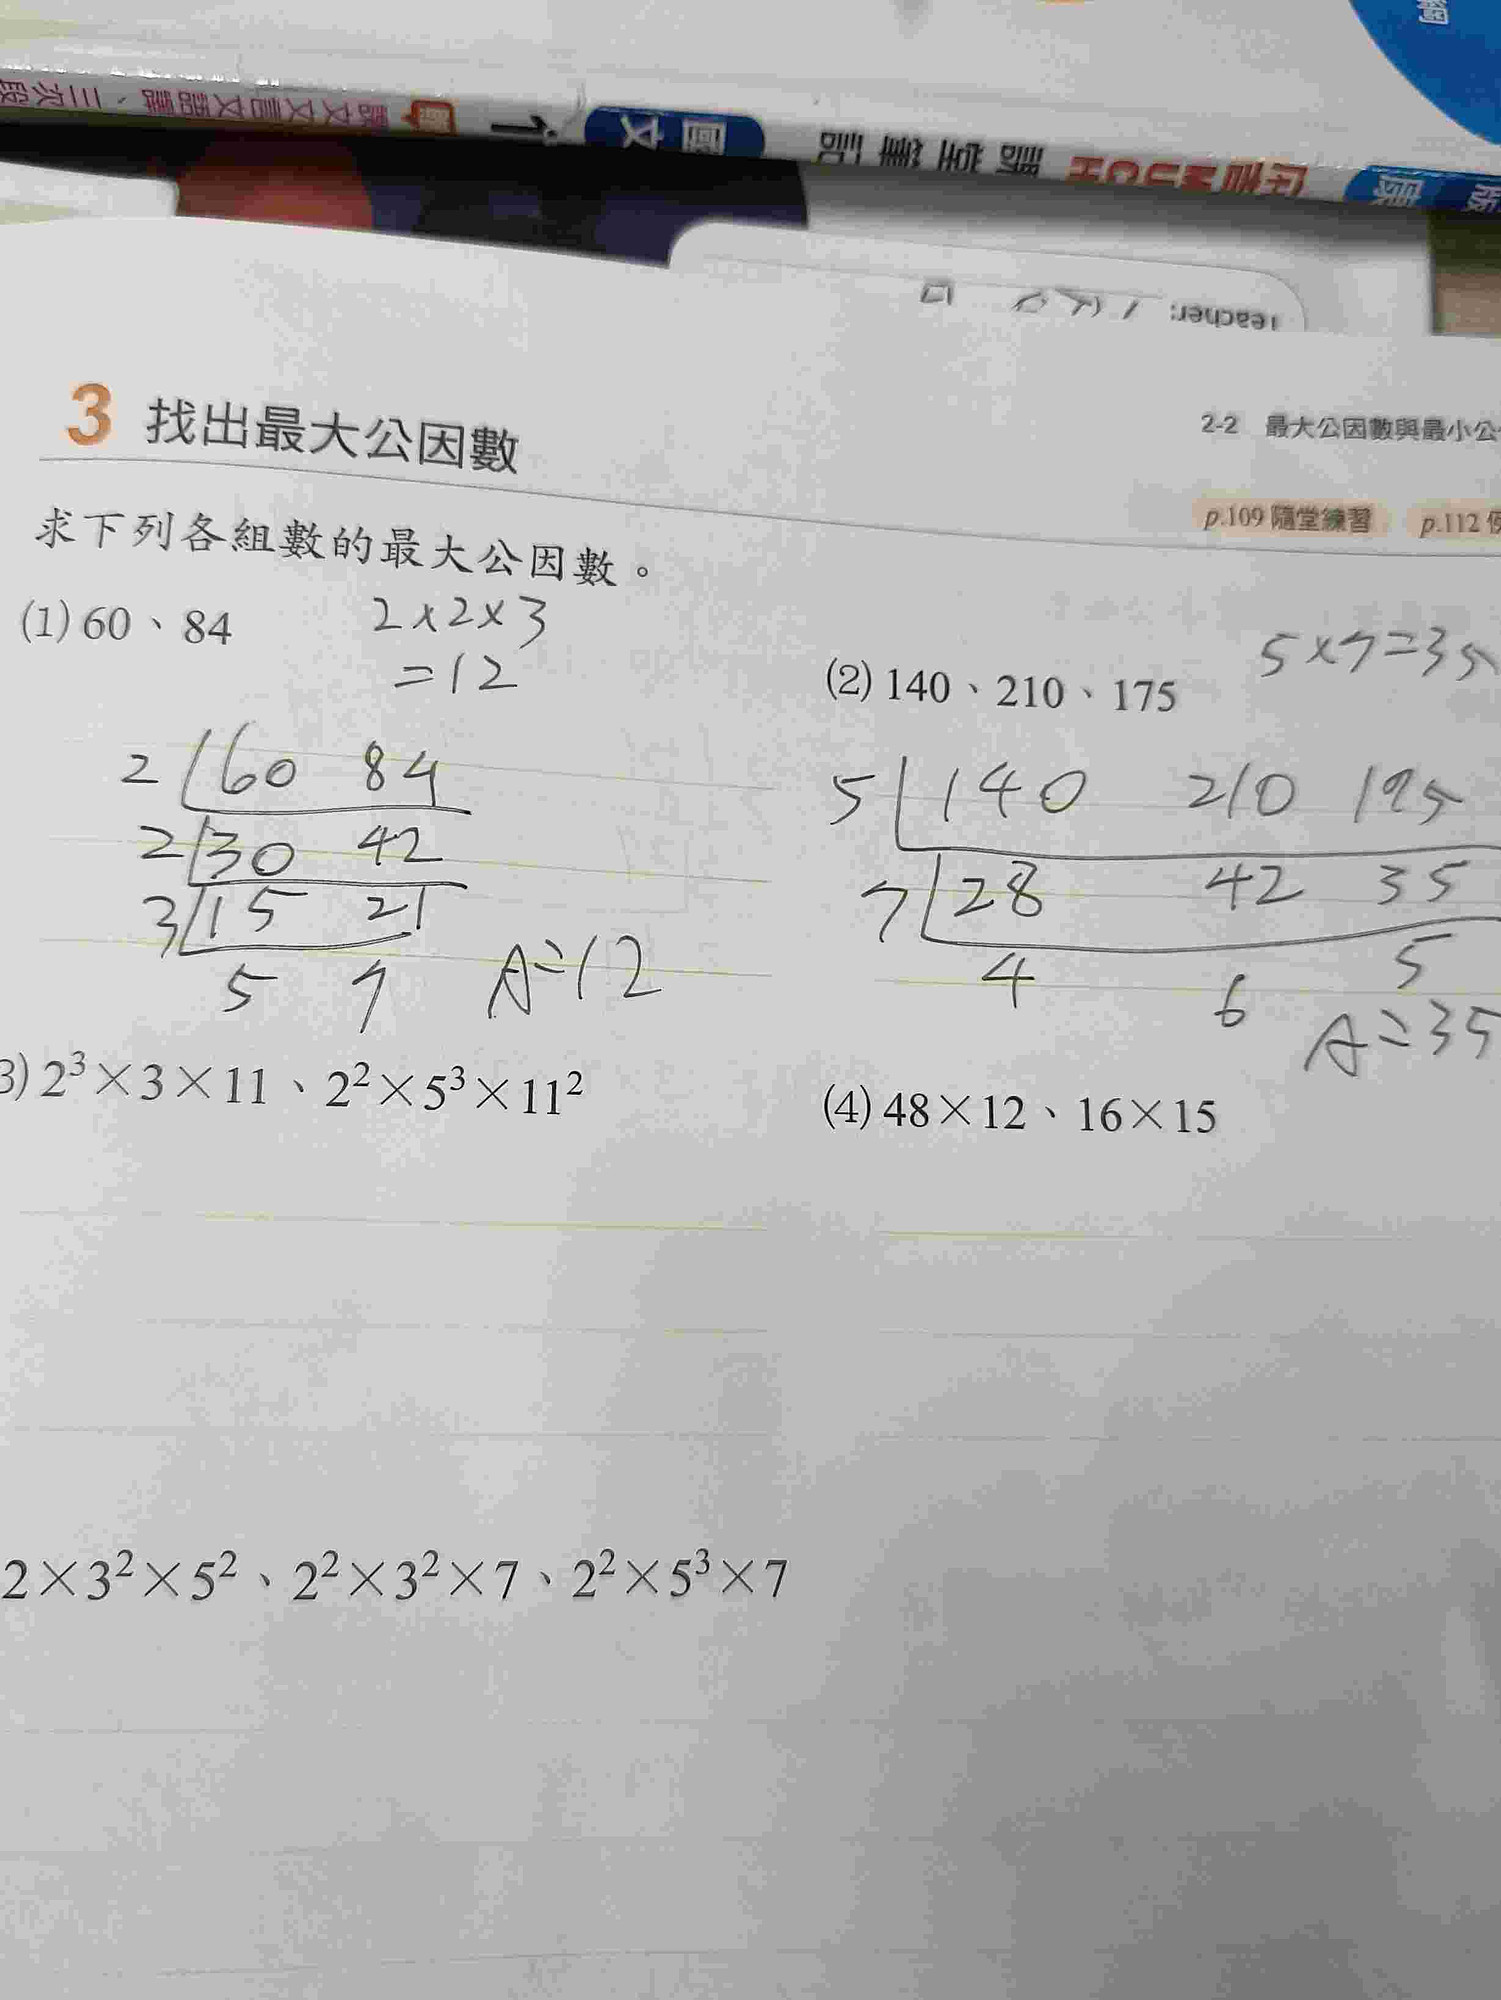 國文
課堂筆記
3 找出最大公因數
2-2 最大公因數與最小公
p.109 隨堂練習 p.112
求下列各組數的最大公因數。
(1) 60、84
2×2×3
=12
2 60 84
2 30 42
3 15 21
5 7
A=12
(2) 140、210、175
5×7=35
5 140 210 175
7 28 42 35
4 6 5
A=35
3) 2³×3×11、2²×5³×11²
(4) 48×12、16×15
2×3²×5²、2²×3²×7、2²×5³×7
Teacher: